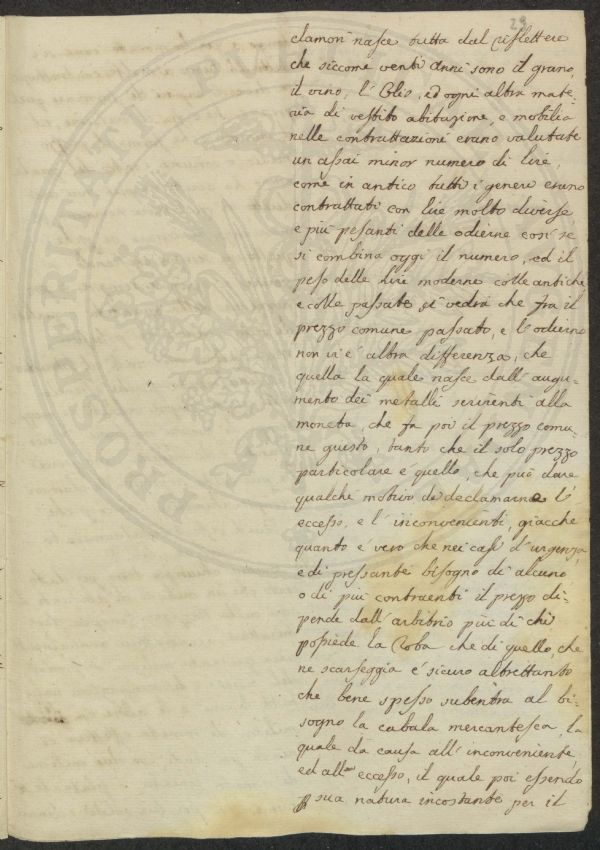 29
clamori nasce tutta dal riflettere
che siccome venti anni sono il grano,
il vino, l'Olio, ed ogni altra mate-
ria di vestito abitazione, e mobilia
nelle contrattazioni erano valutate
un assai minor numero di lire,
come in antico tutti i generi erano
contrattati con lire molto diverse,
e più pesanti delle odierne così se
si combina oggi il numero, ed il
peso delle lire moderne colle antiche,
e colle passate si vedrà che fra il
prezzo comune passato, e l'odierno
non vi è altra differenza, che
quella la quale nasce dall'augu-
mento dei metalli servienti alla
moneta, che fa poi il prezzo comu-
ne giusto, tanto che il solo prezzo
particolare è quello, che può dare
qualche motivo di declamarne l'
eccesso, e l'inconvenienti, giacche
quanto è vero che nei casi d'urgenza,
e di pressante bisogno di alcuno,
o di più contraenti il prezzo di-
pende dall'arbitrio più di chi
possiede la Roba che di quello, che
ne scarseggia è sicuro altrettanto
che bene spesso subentra al bi-
sogno la cabala mercantesca, la
quale da causa all'inconveniente,
ed all' eccesso, il quale poi essendo
sua natura incostante per il